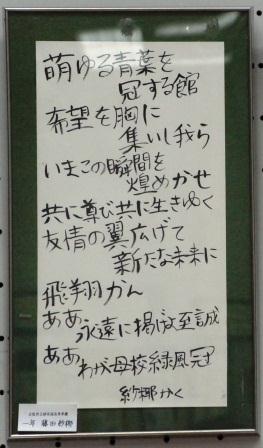 萌ゆる青葉を
冠する館
希望を胸に
集いし我ら
いまこの瞬間を
煌めかせ
共に尊び共に生きゆく
友情の翼広げて
新たな未来に
飛翔かん
ああ
永遠に掲げよ至誠
ああ
わが母校緑風冠
紗椰かく
一年 藤田紗椰